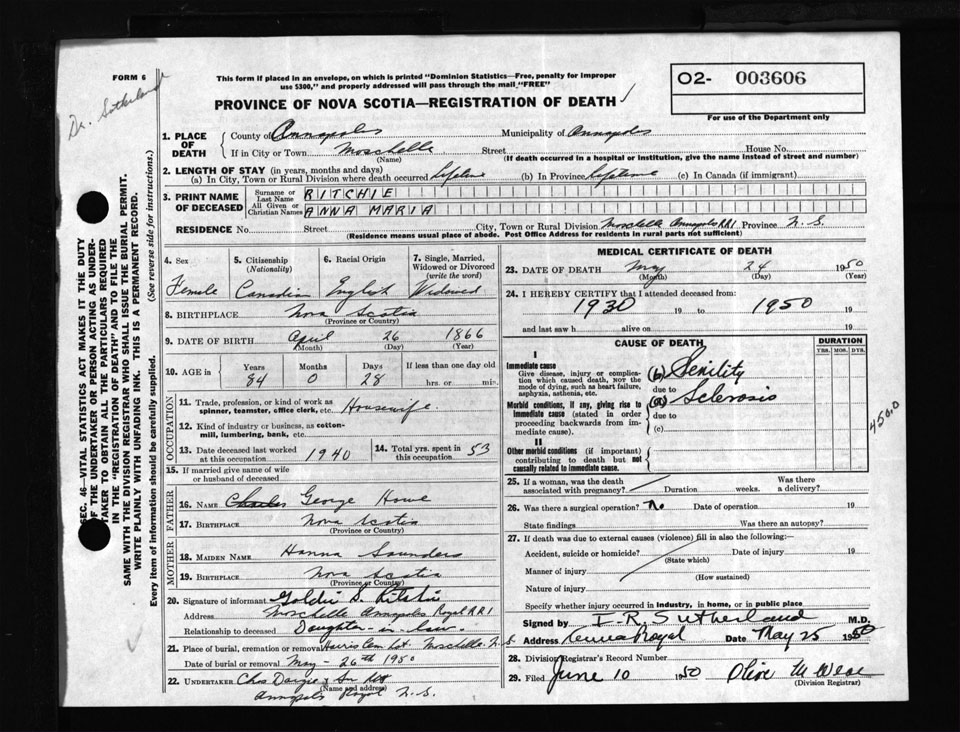 FORM 6
Dr. Sutherland
This form if placed in an envelope, on which is printed "Dominion Statistics—Free, penalty for improper
use $300," and properly addressed will pass through the mail "FREE"
O2- 003606
For use of the Department only
PROVINCE OF NOVA SCOTIA—REGISTRATION OF DEATH
1. PLACE OF DEATH
County of Annapolis Municipality of Annapolis
If in City or Town Moschelle Street House No.
(Name) (If death occurred in a hospital or institution, give the name instead of street and number)
2. LENGTH OF STAY (in years, months and days)
(a) In City, Town or Rural Division where death occurred Lifetime (b) In Province Lifetime (c) In Canada (if immigrant)
3. PRINT NAME OF DECEASED
Surname or Last Name RITCHIE
All Given or Christian Names ANNA MARIA
RESIDENCE No. Street City, Town or Rural Division Moschelle Annapolis RR1 Province N.S.
(Residence means usual place of abode. Post Office Address for residents in rural parts not sufficient)
SEC. 46—VITAL STATISTICS ACT MAKES IT THE DUTY
OF THE UNDERTAKER OR PERSON ACTING AS UNDER-
TAKER TO OBTAIN ALL THE PARTICULARS REQUIRED
IN THE "REGISTRATION OF DEATH" AND TO FILE THE
SAME WITH THE DIVISION REGISTRAR WHO SHALL ISSUE THE BURIAL PERMIT.
WRITE PLAINLY WITH UNFADING INK. THIS IS A PERMANENT RECORD.
Every item of information should be carefully supplied. (See reverse side for instructions.)
4. Sex 5. Citizenship 6. Racial Origin 7. Single, Married,
(Nationality) Widowed or Divorced
(write the word)
Female Canadian English Widowed
8. BIRTHPLACE Nova Scotia
(Province or Country)
9. DATE OF BIRTH April 26 1866
(Month) (Day) (Year)
10. AGE in Years Months Days If less than one day old
84 0 28 hrs. or min.
OCCUPATION
11. Trade, profession, or kind of work as
spinner, teamster, office clerk, etc. Housewife
12. Kind of industry or business, as cotton-
mill, lumbering, bank, etc.
13. Date deceased last worked at this occupation 1940
14. Total yrs. spent in this occupation 53
15. If married give name of wife
or husband of deceased
FATHER
16. NAME Charles George Howe
17. BIRTHPLACE Nova Scotia
(Province or Country)
MOTHER
18. MAIDEN NAME Hanna Saunders
19. BIRTHPLACE Nova Scotia
(Province or Country)
20. Signature of informant Goldie S. Ritchie
Address Moschelle Annapolis Royal RR1
Relationship to deceased Daughter-in-law
21. Place of burial, cremation or removal Lot Moschelle N
Date of burial or removal May - 26th 1950
22. UNDERTAKER Chas Dargie & Son
(Name and address)
Annapolis Royal N.S.
MEDICAL CERTIFICATE OF DEATH
23. DATE OF DEATH May 24 1950
(Month) (Day) (Year)
24. I HEREBY CERTIFY that I attended deceased from:
1930 19 to 1950 19
and last saw h alive on 19
CAUSE OF DEATH DURATION
YRS. MOS. DYS.
I
Immediate cause
Give disease, injury or complica-
tion which caused death, NOT the
mode of dying, such as heart failure,
asphyxia, asthenia, etc.
(b) Senility
due to
Morbid conditions, if any, giving rise to
immediate cause (stated in order
proceeding backwards from im-
mediate cause).
(a) Sclerosis
due to
(c)
450.0
II
Other morbid conditions (if important)
contributing to death but not
causally related to immediate cause.
25. If a woman, was the death Was there
associated with pregnancy? Duration weeks. a delivery?
26. Was there a surgical operation? No Date of operation 19
State findings Was there an autopsy?
27. If death was due to external causes (violence) fill in also the following:—
Accident, suicide or homicide? Date of injury 19
(State which)
Manner of injury
(How sustained)
Nature of injury
Specify whether injury occurred in industry, in home, or in public place
Signed by I. R. Sutherland M.D.
Address Royal Date May 25 1950
28. Division Registrar's Record Number
29. Filed June 10 1950 Olive M
(Division Registrar)